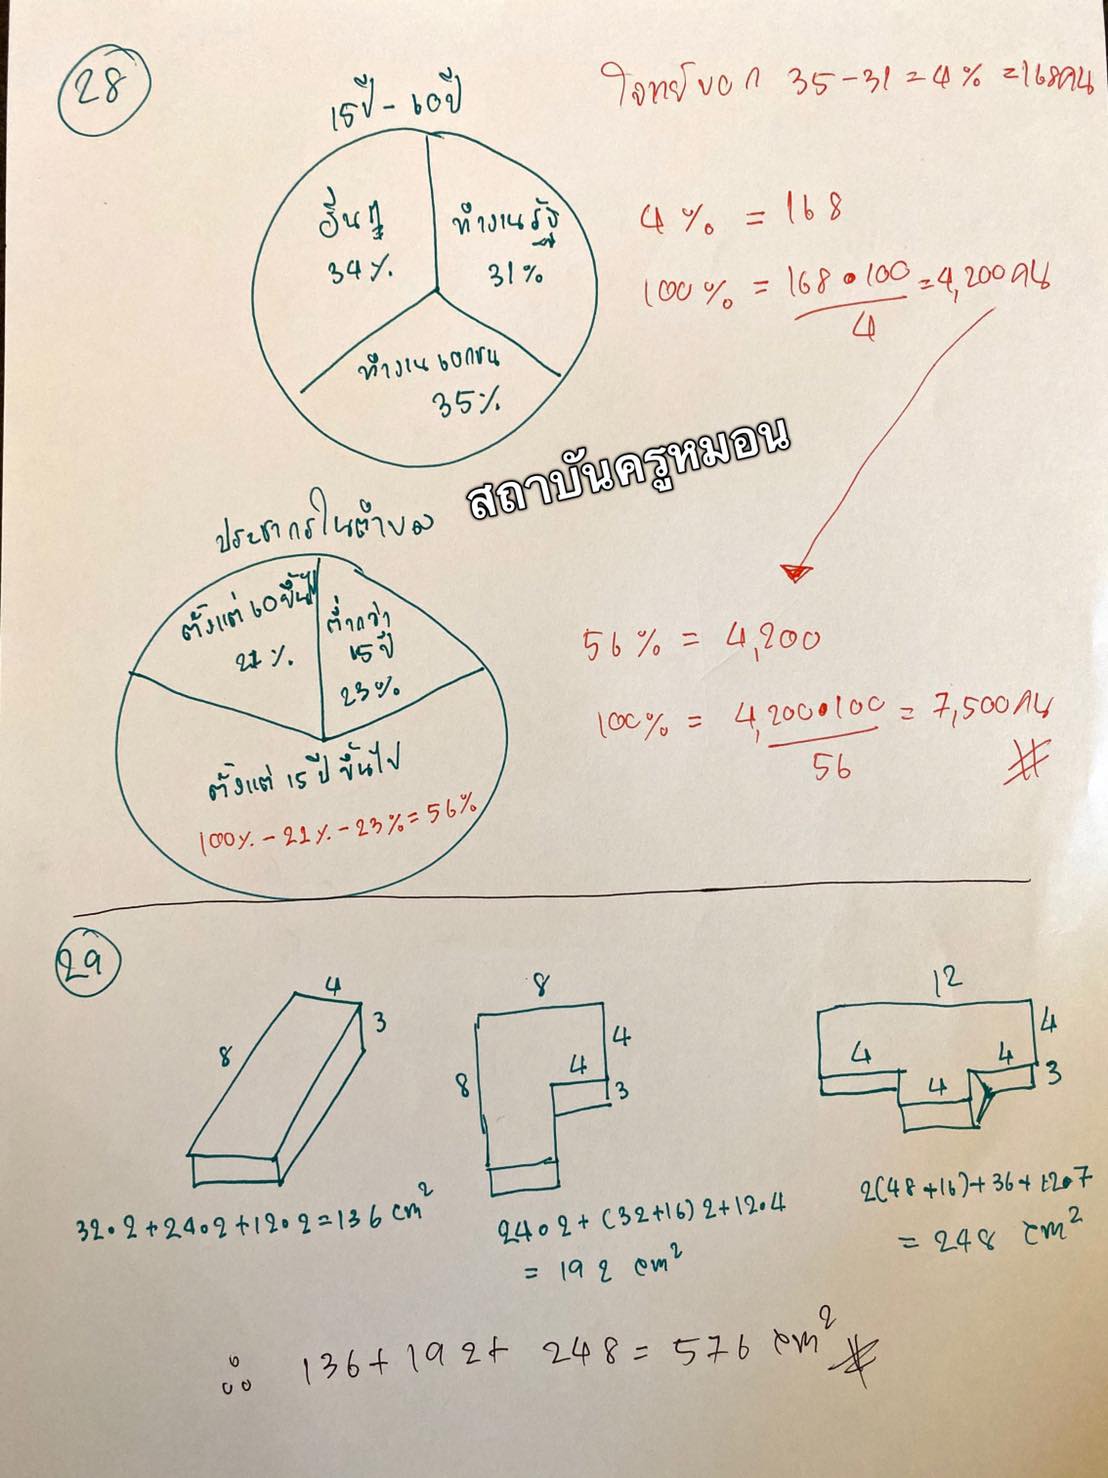 28
15ปี - 60ปี
โจทย์บอก 35-31=4% =168คน
อื่นๆ
34%.
ทำงานรัฐ
31%
ทำงานเอกชน
35%
4% = 168
100% = 168•100 = 4,200คน
4
สถาบันครูหมอน
ประชากรในตำบล
ตั้งแต่ 60ขึ้นไป
21%.
ต่ำกว่า
15ปี
23%
ตั้งแต่ 15ปีขึ้นไป
100%-21%-23%=56%
56% = 4,200
100% = 4,200•100 = 7,500คน
56
29
4
3
8
8
8
4
4
3
12
4
4
4
4
3
32•2+24•2+12•2=136 cm²
24•2+(32+16)2+12•4
= 192 cm²
2(48+16)+36+12•7
= 248 cm²
∴ 136+192+ 248 = 576 cm²